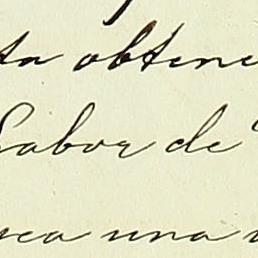 ta obtene
Labor de
vea una